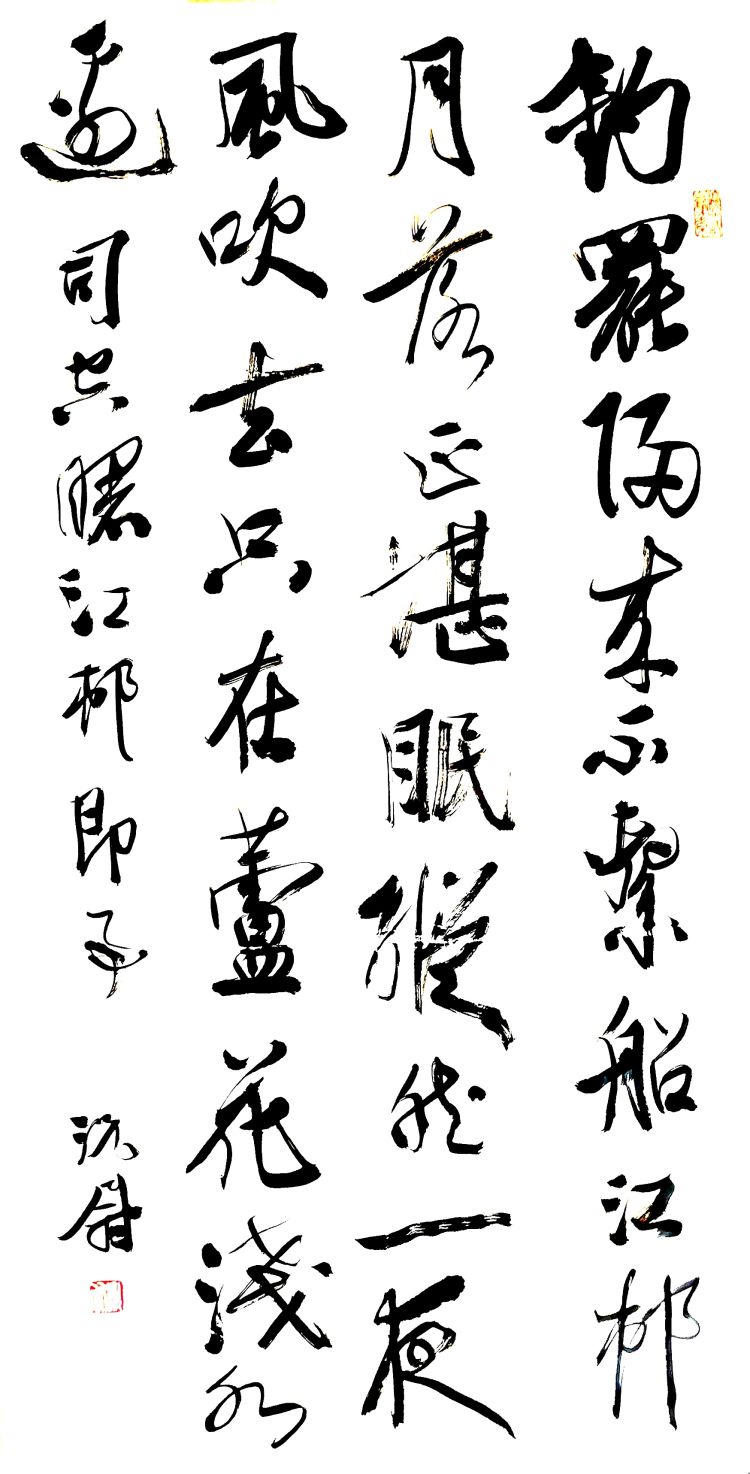 釣罷歸來不繫船江邨
月落正堪眠縱然一夜
風吹去只在蘆花淺水
邊 司空曙江邨即事